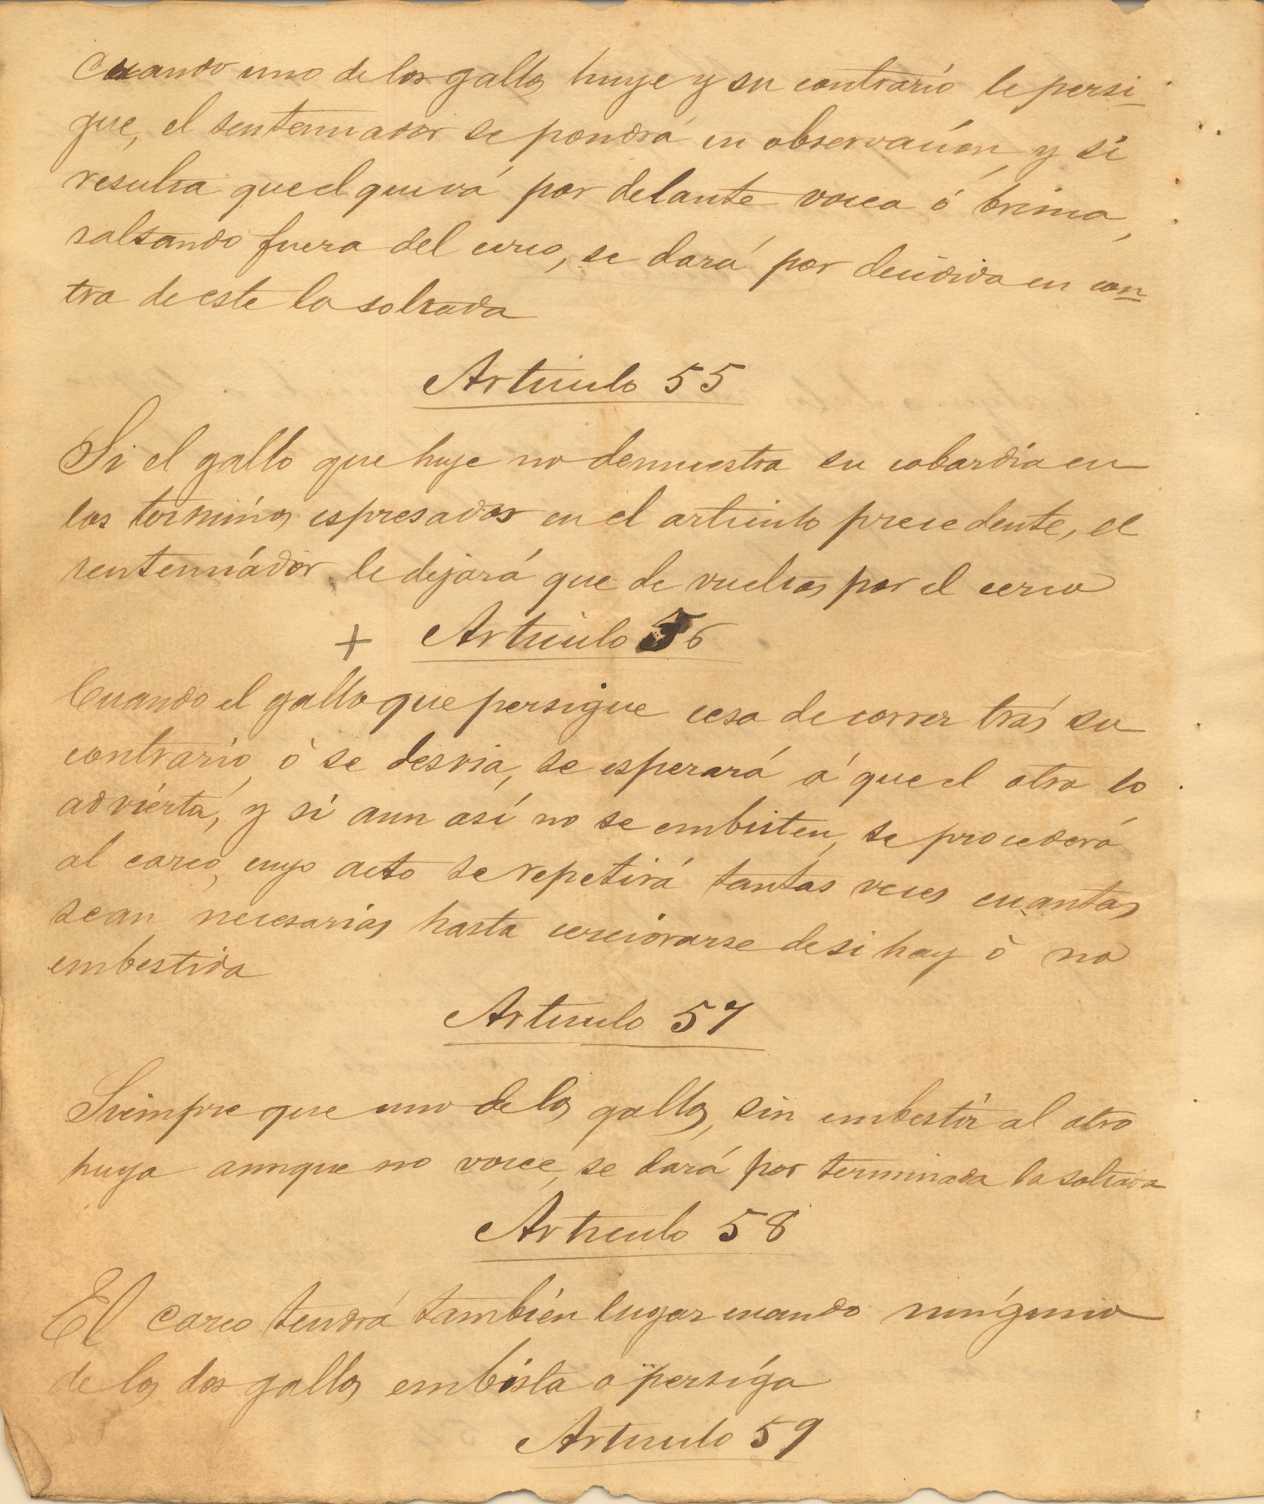 Cuando uno de los gallos huye y su contrario le persi-
gue, el sentenciador se pondrá en observación, y si
resulta que el que vá por delante vocea ó brinca,
saltando fuera del cerco, se dará por decidida en con-
tra de este la soltada
Artículo 55
Si el gallo que huye no demuestra su cobardia en
los terminos espresados en el articulo precedente, el
sentenciádor le dejará que de vueltas por el cerco
+ Articulo 56
Cuando el gallo que persigue cesa de correr trás su
contrario, ò se desvia, se esperará á que el otro lo
advierta, y si aun así no se embisten, se procederá
al careo, cuyo acto se repetirá tantas veces cuantas
sean necesarias hasta cerciorarse de si hay ò no
embestida
Articulo 57
Siempre que uno de los gallos, sin embestir al otro
huya aunque no vocee, se dará por terminada la soltada
Articulo 58
El careo tendrá también lugar cuando ninguno
de los dos gallos embista o persiga
Articulo 59